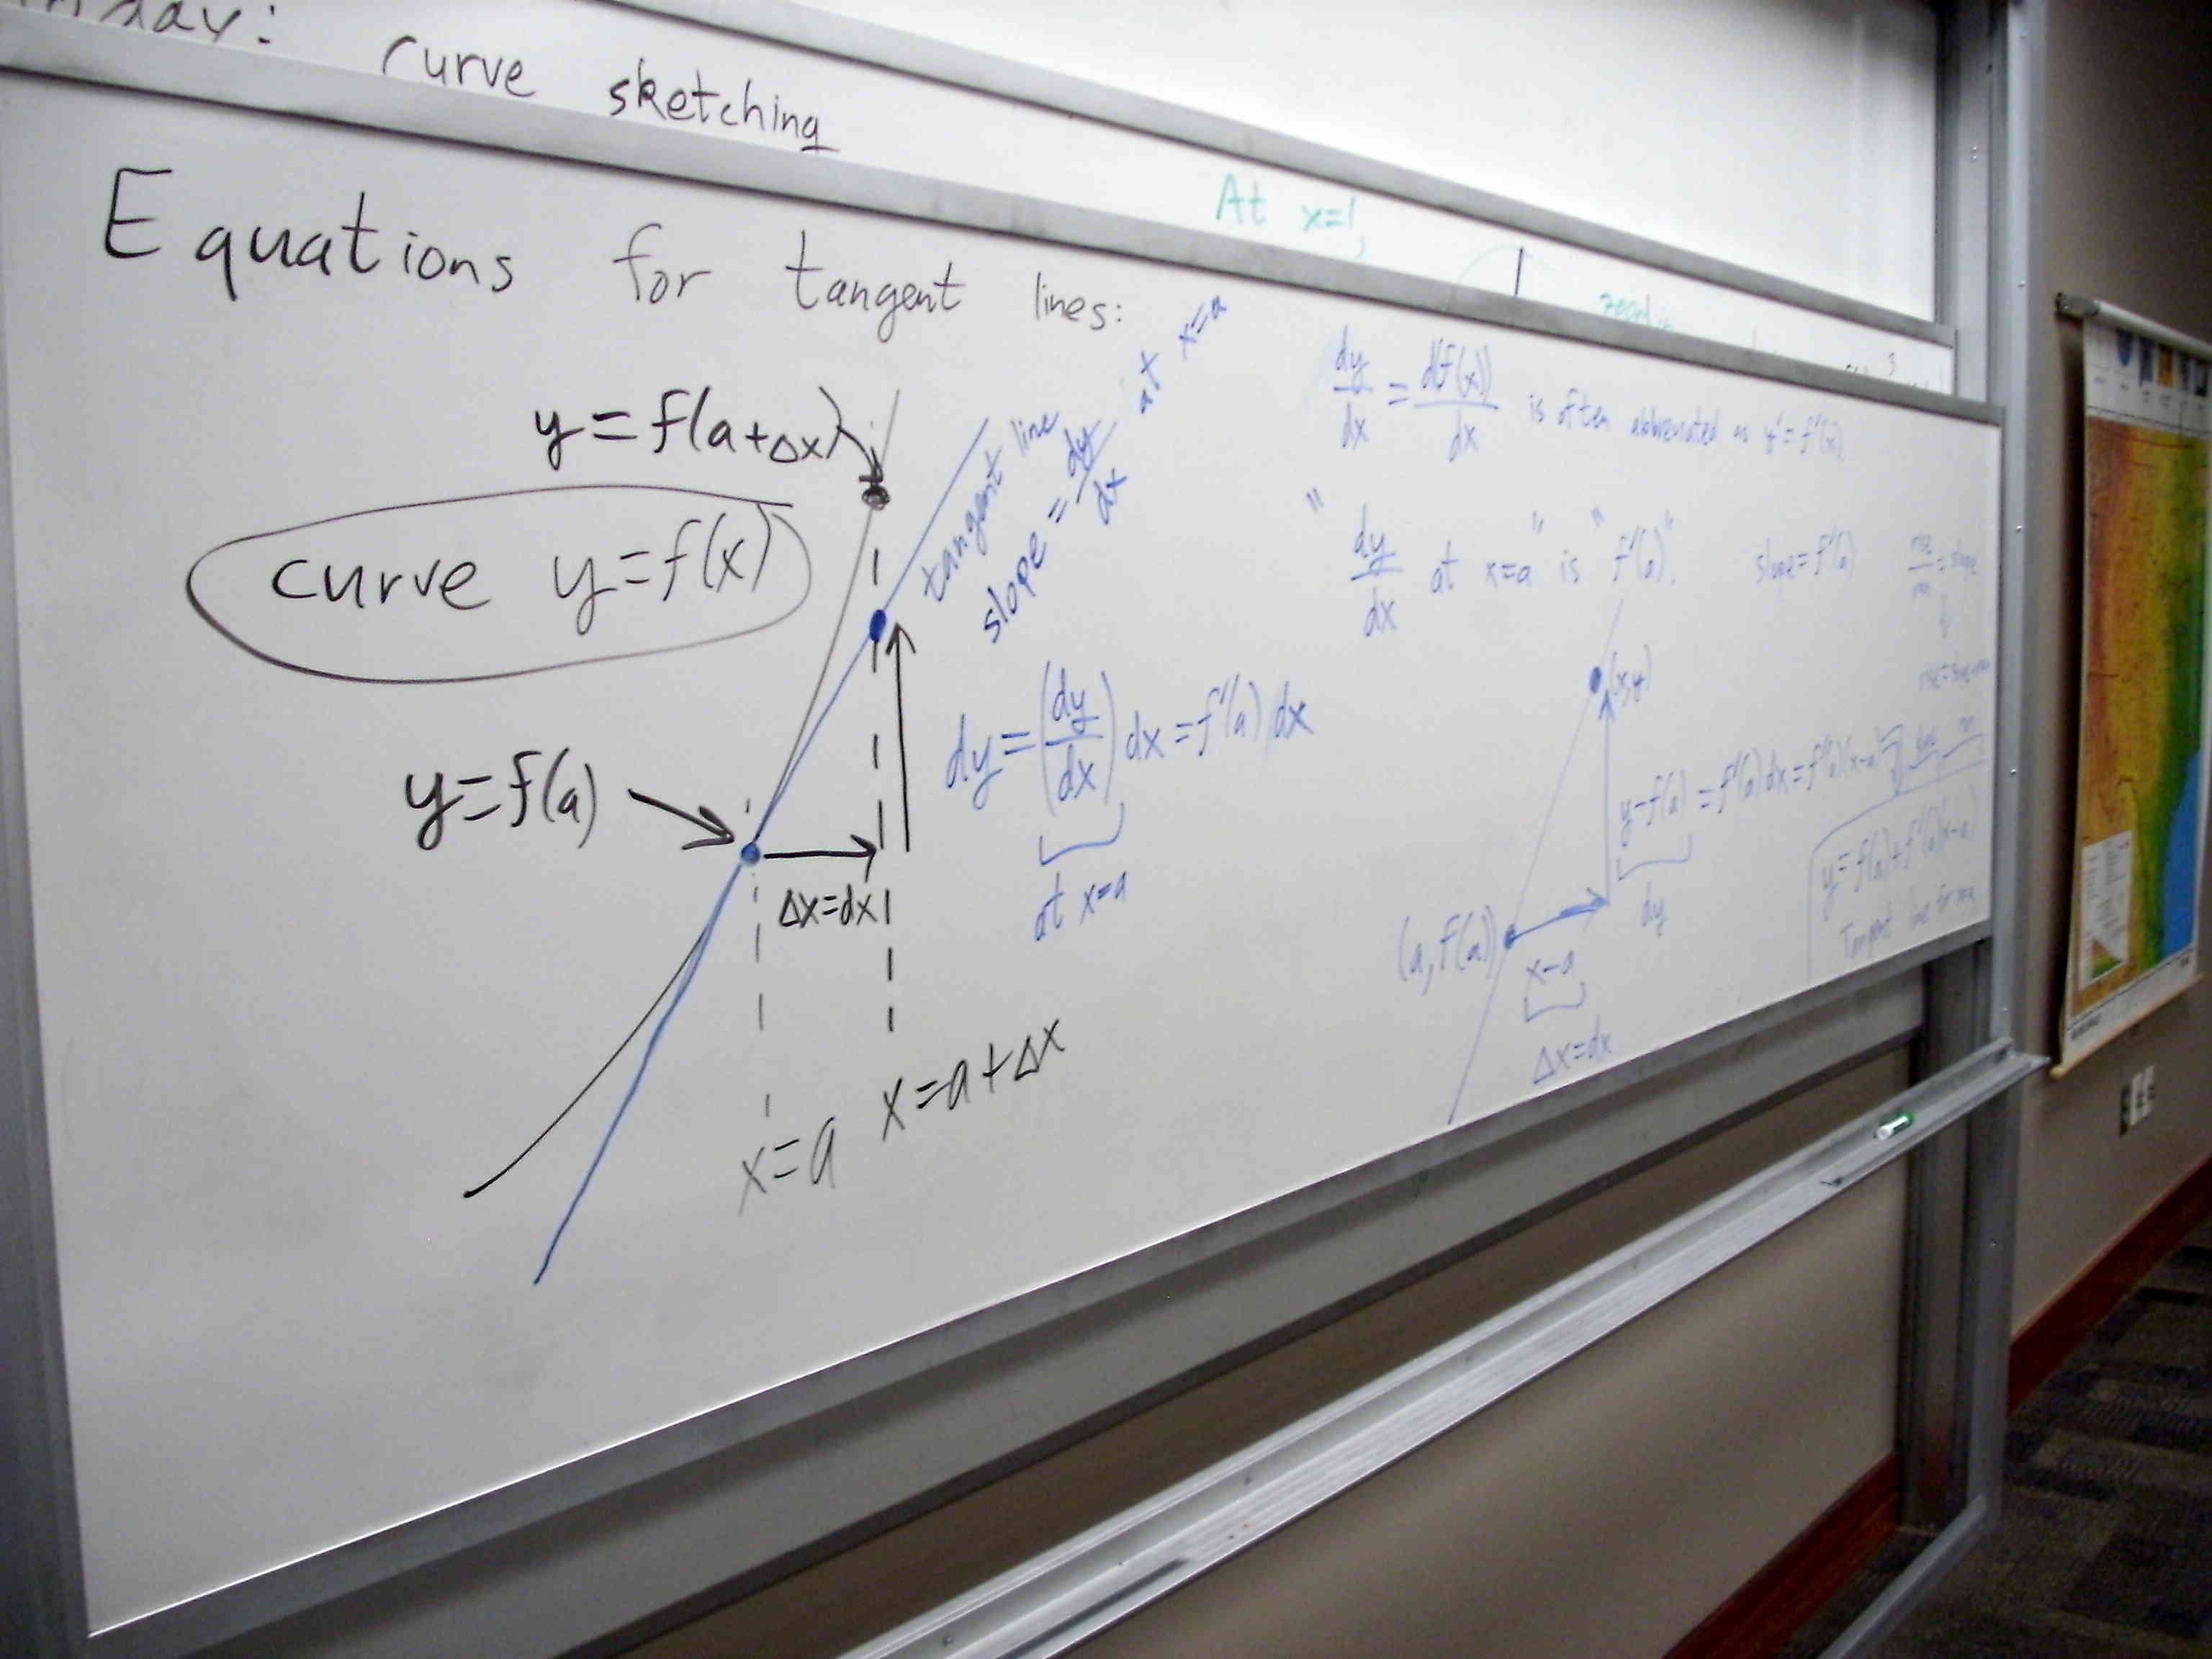 curve sketching
At x=1,
Equations for tangent lines:
y=f(a+Δx)
curve y=f(x)
y=f(a)
Δx=dx
x=a
x=a+Δx
tangent line
slope = dy/dx at x=a
dy=(dy/dx)dx=f'(a)dx
at x=a
dy/dx = d(f(x))/dx is often abbreviated as y'=f'(x).
"dy/dx at x=a" is "f'(a)".
slope=f'(a)
rise/run=slope
(x,y)
y-f(a)=f'(a)dx=f'(a)(x-a)
dy
(a,f(a))
x-a
Δx=dx
y=f(a)+f'(a)(x-a)
Tangent line